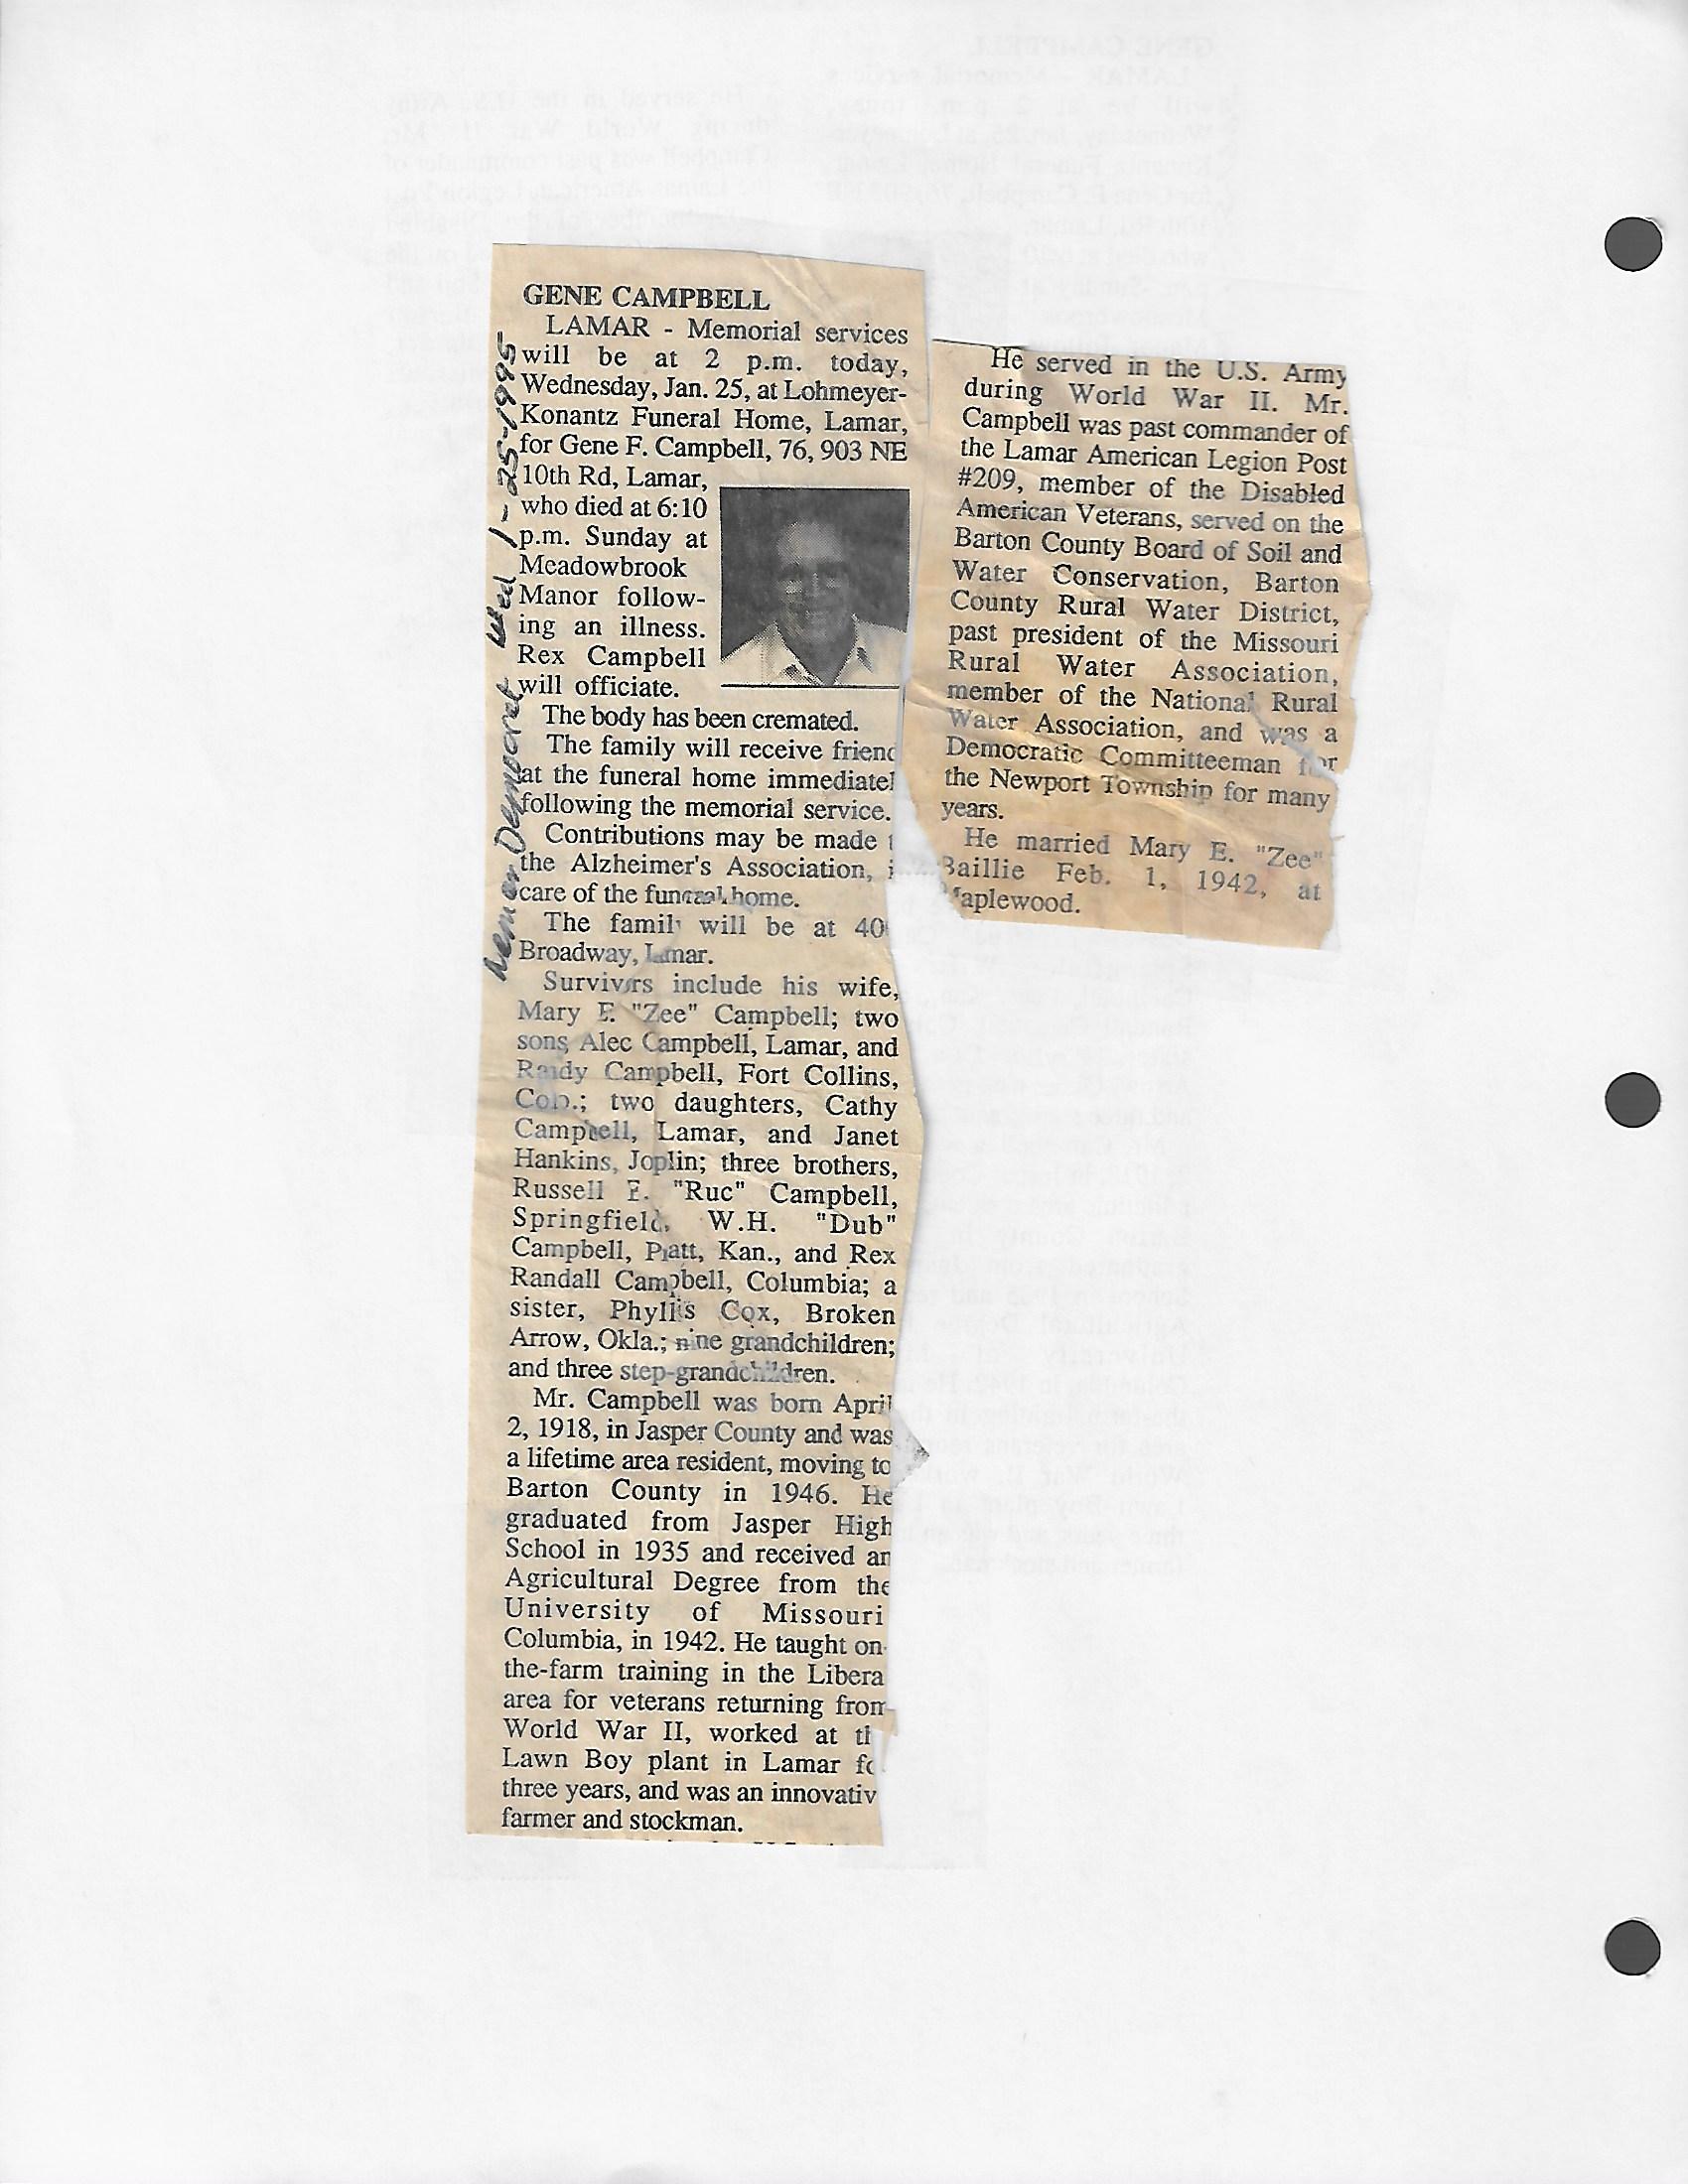 GENE CAMPBELL
LAMAR - Memorial services
will be at 2 p.m. today,
Wednesday, Jan. 25, at Lohmeyer-
Konantz Funeral Home, Lamar,
for Gene F. Campbell, 76, 903 NE
10th Rd, Lamar,
who died at 6:10
p.m. Sunday at
Meadowbrook
Manor follow-
ing an illness.
Rex Campbell
will officiate.
The body has been cremated.
The family will receive friend
at the funeral home immediatel
following the memorial service.
Contributions may be made t
the Alzheimer's Association, i
care of the funeral home.
The family will be at 40
Broadway, Lamar.
Survivors include his wife,
Mary E. "Zee" Campbell; two
sons, Alec Campbell, Lamar, and
Randy Campbell, Fort Collins,
Colo.; two daughters, Cathy
Campbell, Lamar, and Janet
Hankins, Joplin; three brothers,
Russell E. "Ruc" Campbell,
Springfield, W.H. "Dub"
Campbell, Pratt, Kan., and Rex
Randall Campbell, Columbia; a
sister, Phyllis Cox, Broken
Arrow, Okla.; nine grandchildren;
and three step-grandchildren.
Mr. Campbell was born April
2, 1918, in Jasper County and was
a lifetime area resident, moving to
Barton County in 1946. He
graduated from Jasper High
School in 1935 and received an
Agricultural Degree from the
University of Missouri
Columbia, in 1942. He taught on-
the-farm training in the Libera
area for veterans returning from
World War II, worked at th
Lawn Boy plant in Lamar fo
three years, and was an innovativ
farmer and stockman.
Lamar Democrat Wed 1-25-1995
He served in the U.S. Army
during World War II. Mr.
Campbell was past commander of
the Lamar American Legion Post
#209, member of the Disabled
American Veterans, served on the
Barton County Board of Soil and
Water Conservation, Barton
County Rural Water District,
past president of the Missouri
Rural Water Association,
member of the National Rural
Water Association, and was a
Democratic Committeeman for
the Newport Township for many
years.
He married Mary E. "Zee"
Baillie Feb. 1, 1942, at
Maplewood.